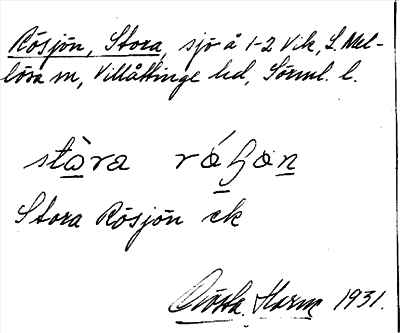 Rösjön, Stora, sjö å 1-2 Vik, L. Mel-
lösa sn, Villåttinge hd, Sörml. l.
stora
Stora Rösjön ek
Gösta Harm 1931.